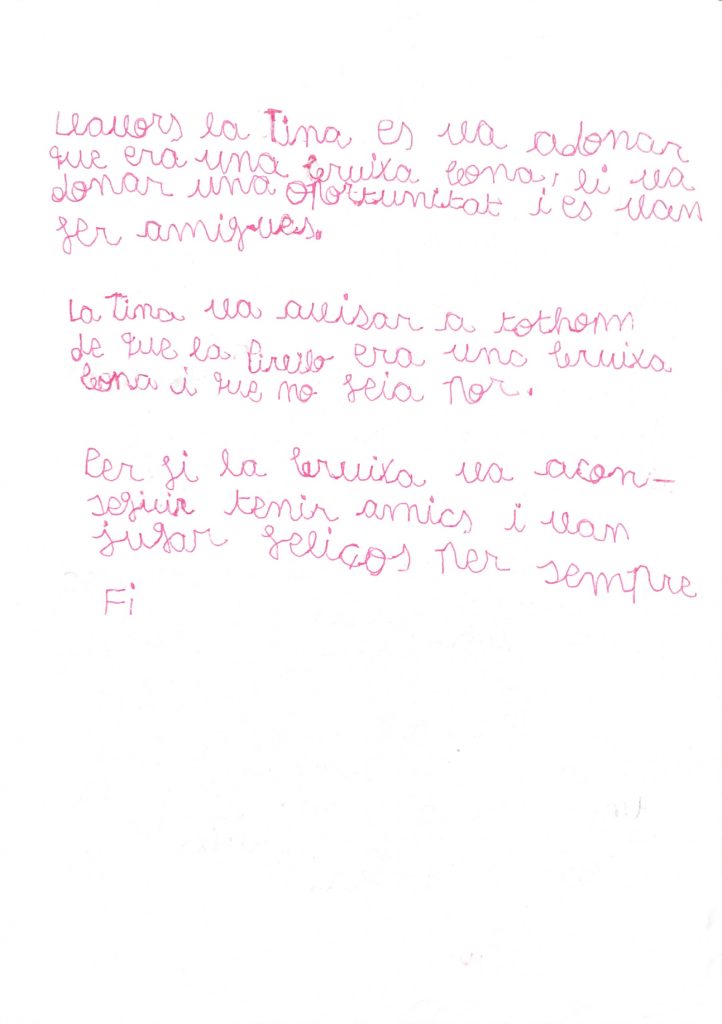 Llavors la Tina es va adonar
que era una bruixa bona, li va
donar una oportunitat i es van
fer amigues.
La Tina va avisar a tothom
de que la era una bruixa
bona i que no feia por.
Per fi la bruixa va acon-
seguir tenir amics i van
jugar feliços per sempre
Fi